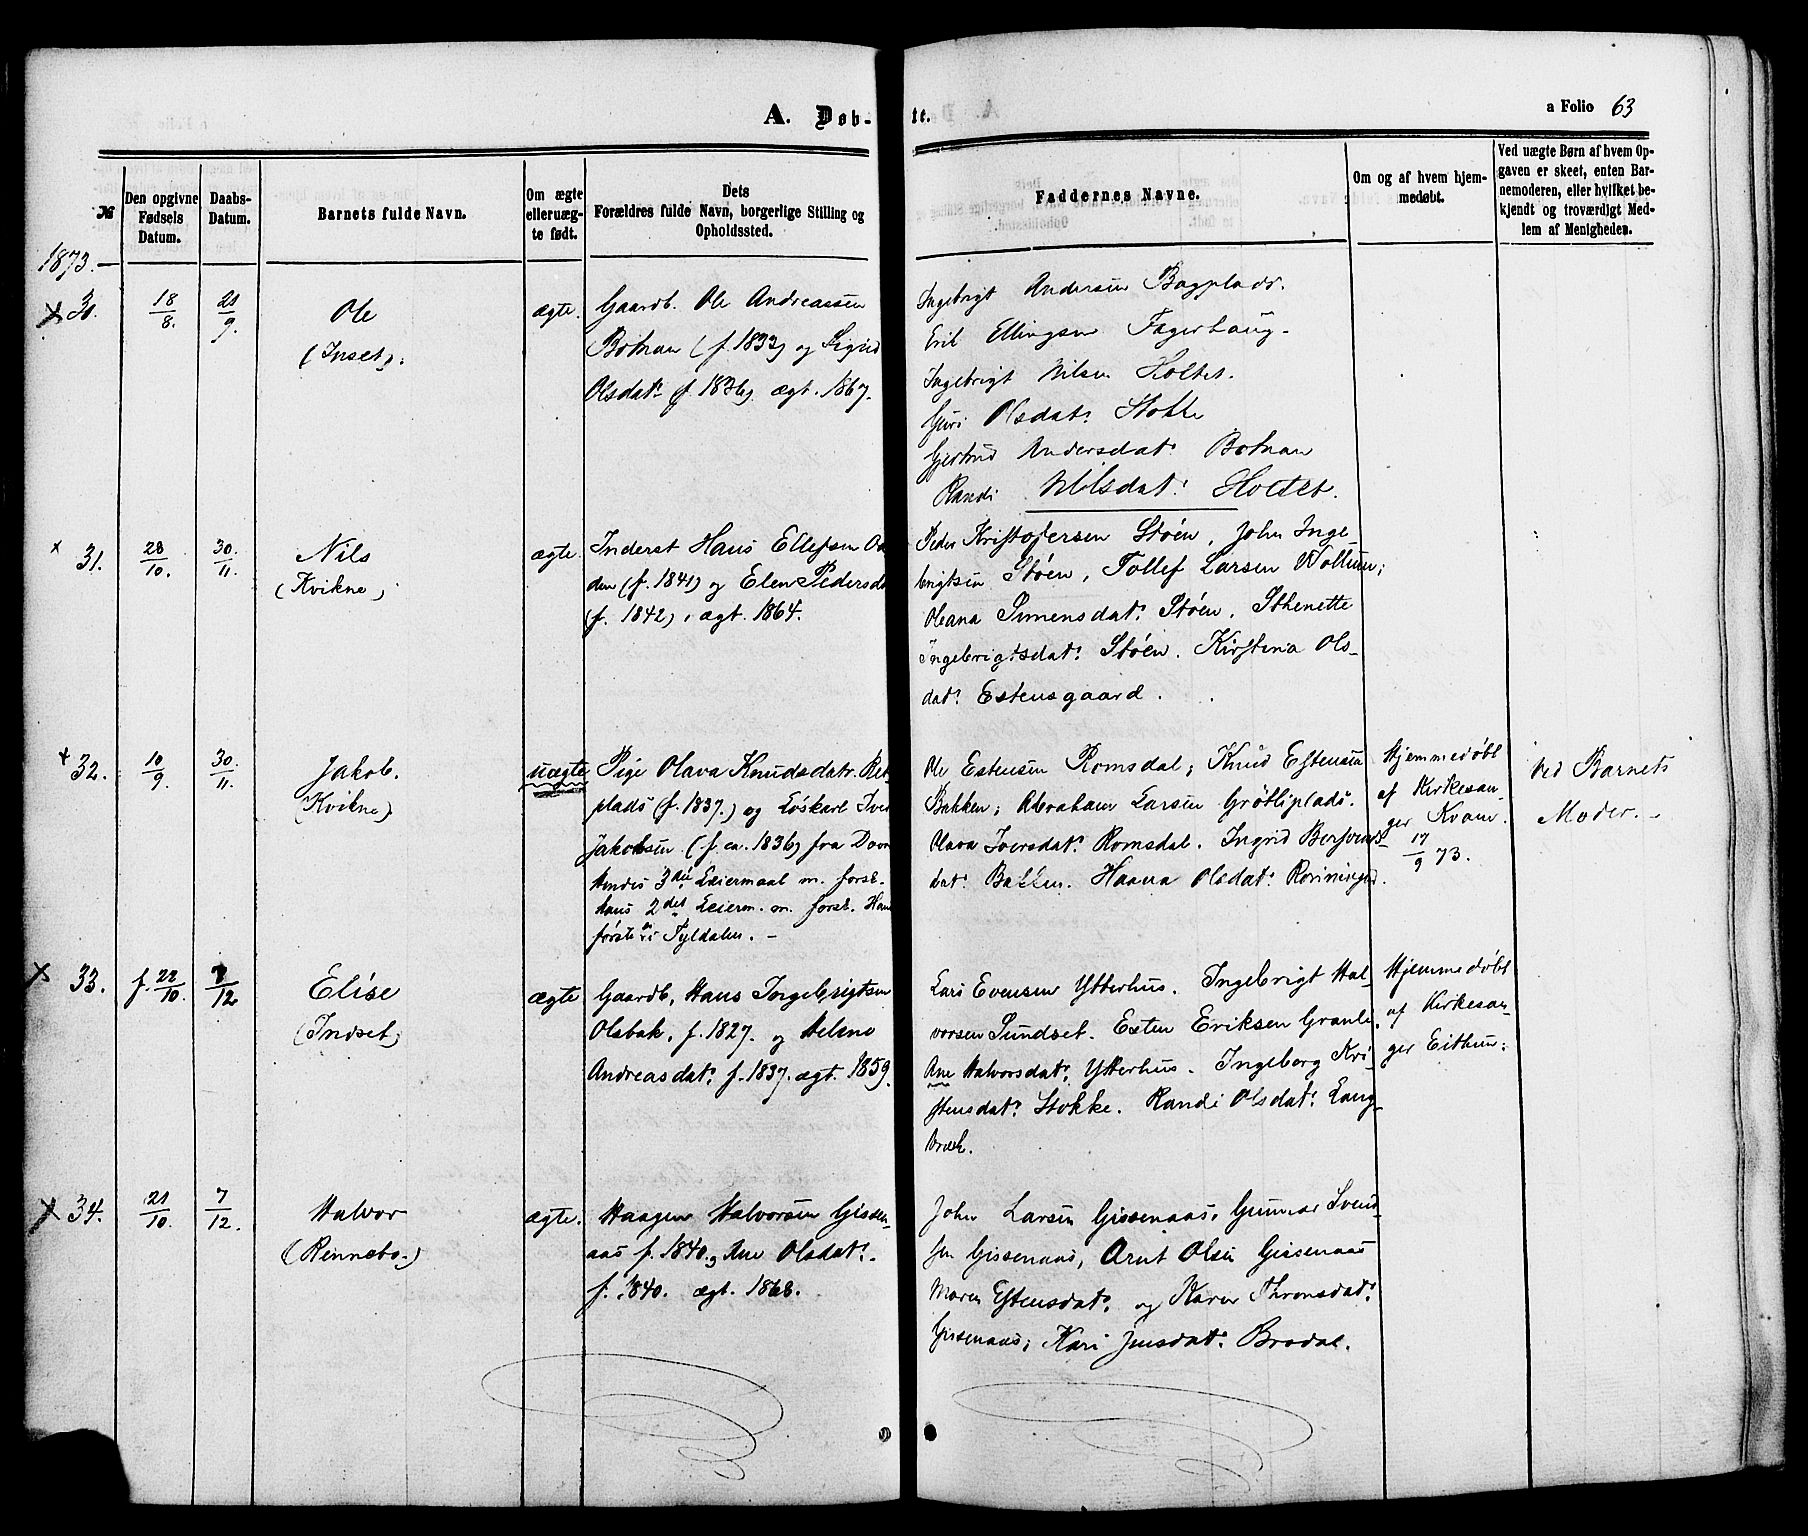 A. Døb-
te.
a Folio 63
№
Den opgivne Fødsels Datum.
Daabs-Datum.
Barnets fulde Navn.
Om ægte elleruægte født.
Dets Forældres fulde Navn, borgerlige Stilling og Opholdssted.
Faddernes Navne.
Om og af hvem hjemmedøbt.
Ved uægte Børn af hvem Opgaven er skeet, enten Barnemoderen, eller hvilket bekjendt og troværdigt Medlem af Menigheden.
1873.
30.
18/8.
21/9
Ole
(Inset).
ægte.
Gaardb. Ole Andreassen
Botnan (f. 1833) og Sigrid
Olsdatr (f. 1836). ægt. 1867.
Ingebrigt Andersen Bagplads.
Erik Ellingsen Fagerhaug.
Ingebrigt Nilsen Holtet.
Guri Olsdatr Stokke
Gjertrud Andersdatr Botnan
Randi Nilsdatr Holtet.
31.
28/10.
30./11.
Nils
(Kvikne)
ægte.
Inderst Hans Ellefsen
den (f. 1841) og Elen Pedersd
(f. 1842), ægt. 1864.
Peder Kristofersen Støen, John Inge-
brigtsen Støen, Tollef Larsen Vollum;
Oleana Simensdatr Støen, Sthenette
Ingebrigtsdatr Støen. Kirstina Ols-
datr Estensgaard.
32.
10/9
30./11.
Jakob.
(Kvikne)
uægte
Pige Olava Knudsdatr.
plads (f. 1837.) og Løskarl Iver
Jakobsen (f. ca. 1836) fra Dovr
Hendes 3die Leiermaal m. forsk.
hans 2det Leierm. m. forsk. Hans
første i Tyldalen. -
Ole Estensen Romsdal; Knud Estensen
Bakken; Abraham Larsen Grøtliplads.
Olava Iversdatr Romsdal. Ingrid Bersvends
datr Bakken. Haana Olsdatr
Hjemmedøbt
af Kirkesan-
ger Kvam.
17/9 73.
Ved Barnets
Moder. -
33.
f. 22/10.
7/12
Elise
(Indset)
ægte
Gaardb. Hans Ingebrigtsen
Olsbak, f. 1827. og Helene
Andreasdatr f. 1837. ægt. 1859.
Lars Evensen Ytterhus. Ingebrigt Hal-
vorsen Sundset. Esten Eriksen Granli.
Ane Halvorsdatr Ytterhus. Ingeborg Kri-
stensdatr Stokke. Randi Olsdatr Lang-
Hjemmedøbt
af Kirkesan-
ger Eithun.
34.
21/10.
7/12.
Halvor
(Rennebo.)
ægte.
Haagen Halvorsen Gissen-
aas f. 1840. og Ane Olsdatr.
f. 1840. ægt. 1868.
John Larsen Gissenaas, Gunnar Svend-
sen Gissenaas, Arnt Olsen Gissenaas
Maren Estensdatr og Karen Thronsdatr
Gissenaas; Kari Jensdatr Brodal.